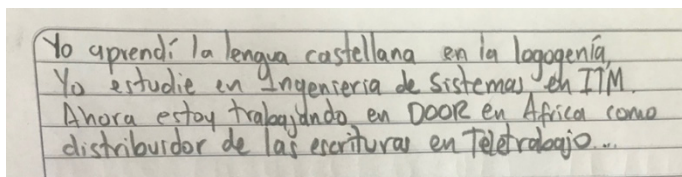 Yo aprendí la lengua castellana en la logogenía,
Yo estudie en Ingenieria de Sistemas, en ITM.
Ahora estoy trabajando en DOOR en Africa como
distribuidor de las escrituras en Teletrabajo...